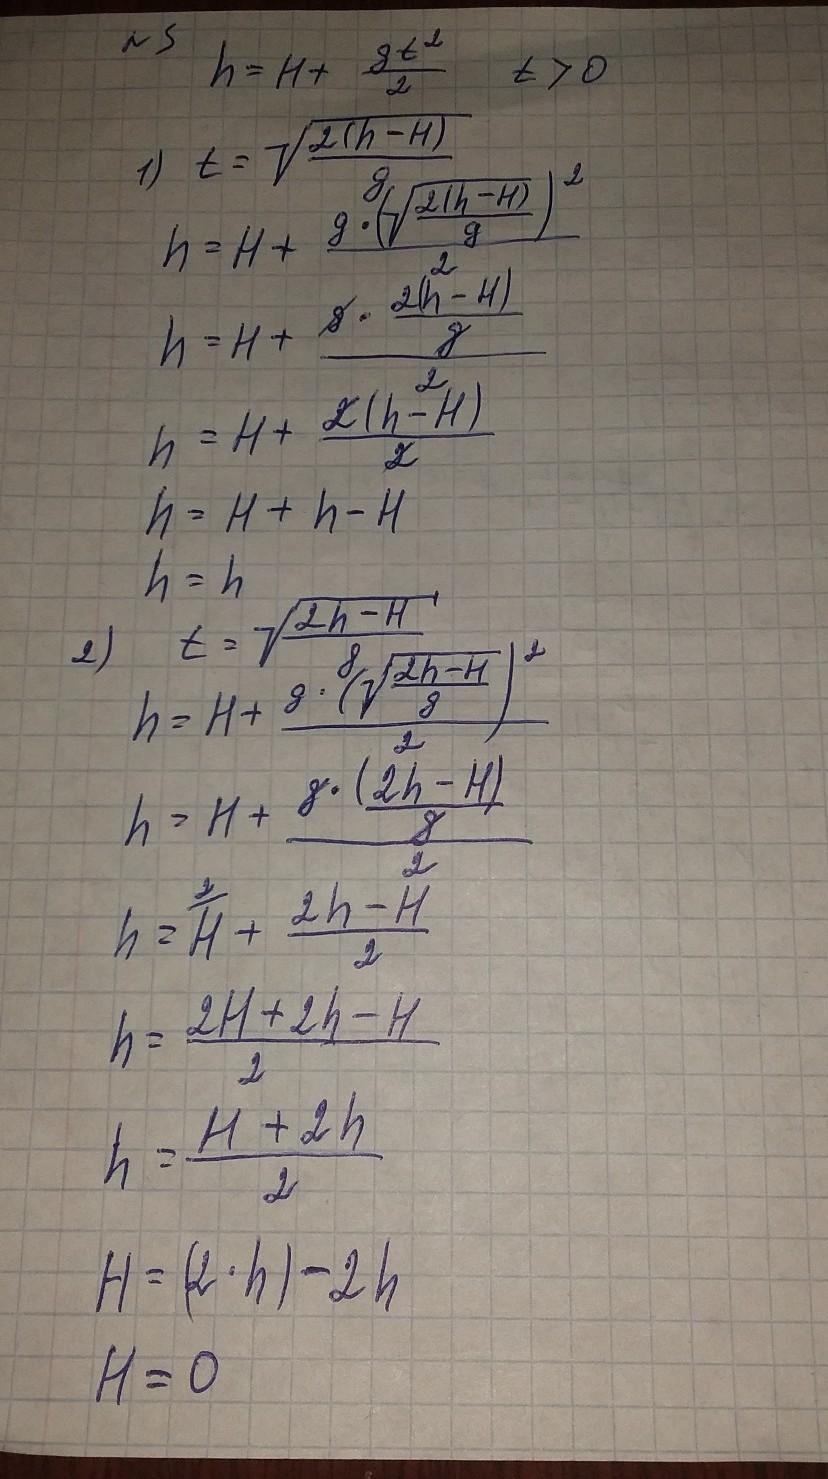 №5
h = H + gt²/2   t > 0
1) t = √(2(h−H)/g)
h = H + g·(√(2(h−H)/g))²/2
h = H + g·2(h−H)/g/2
h = H + 2(h−H)/2
h = H + h − H
h = h
2) t = √(2h−H/g)
h = H + g·(√(2h−H/g))²/2
h = H + g·(2h−H)/g/2
h = ²/H + 2h−H/2
h = 2H+2h−H/2
h = H+2h/2
H = (2·h) − 2h
H = 0